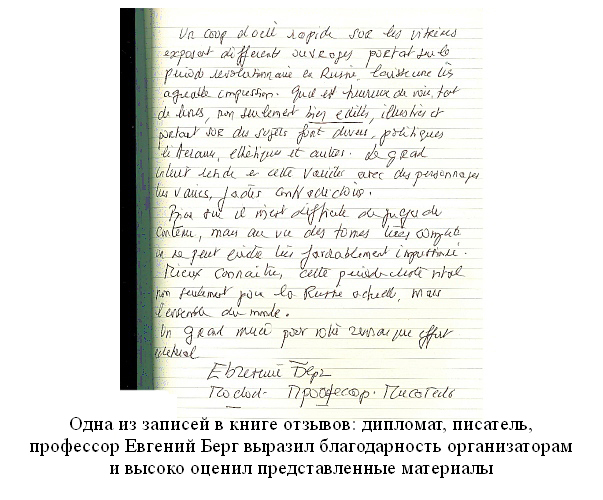 Un coup d'oeil rapide sur les vitrines
exposant différents ouvrages portant sur la
période révolutionnaire en Russie, laisse une très
agréable impression. Qu'il est heureux de voir, tant
de livres, non seulement bien édités, illustrés et
portant sur des sujets fort divers, politiques
littéraires, esthétiques et autres. Le grand
intérêt réside en cette variété avec des personnages
très variés, jadis contradictoires.
Bien sûr il m'est difficile de juger de
contenu, mais au vu des tomes
on ne peut être très favorablement impressionné.
Mieux connaître, cette période reste
non seulement pour la Russie actuelle, mais
l'ensemble du monde.
Un grand merci pour votre remarquable effort
Евгений Берг
Посол - Профессор - Писатель
Одна из записей в книге отзывов: дипломат, писатель,
профессор Евгений Берг выразил благодарность организаторам
и высоко оценил представленные материалы